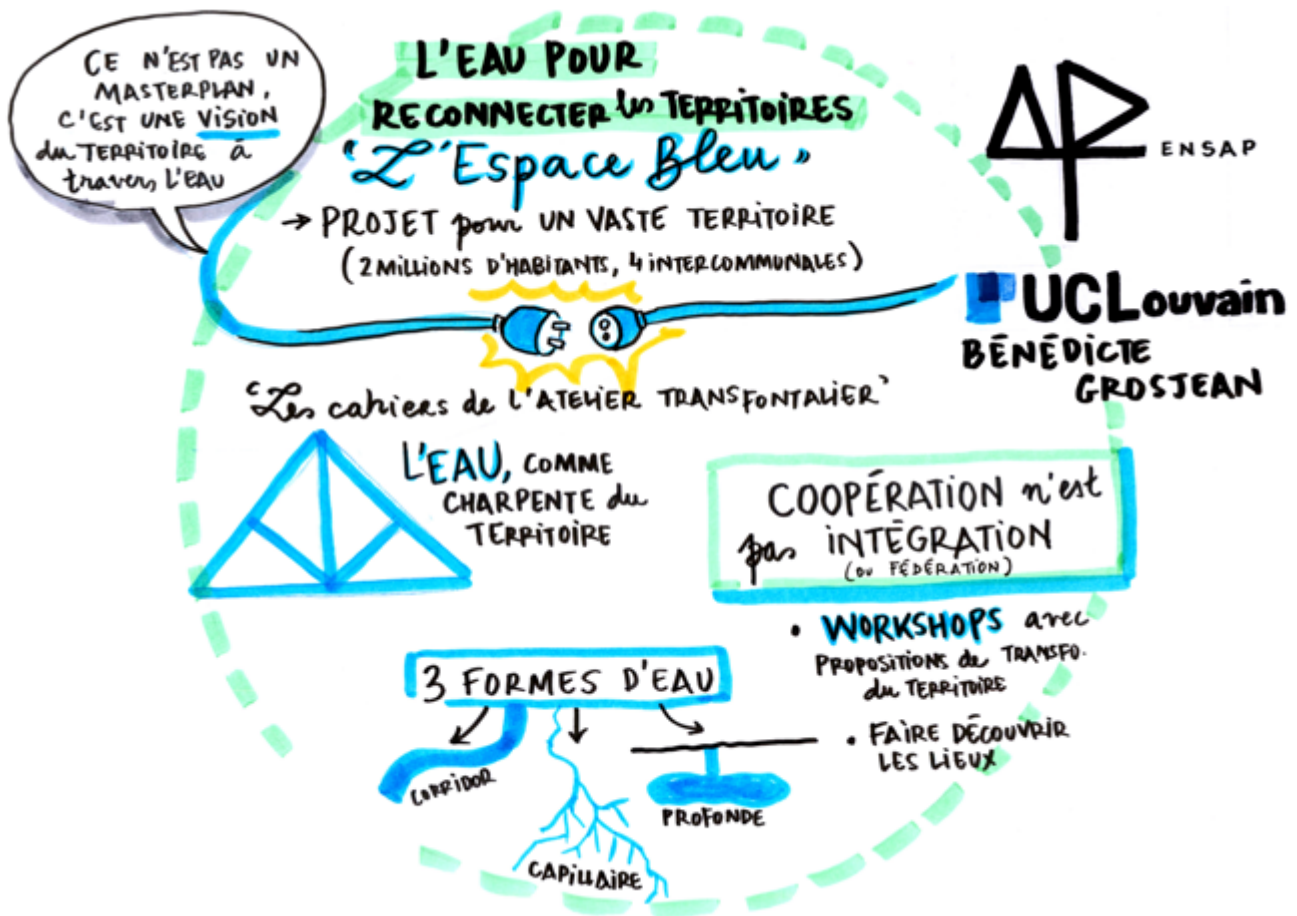 CE N'EST PAS UN
MASTERPLAN,
C'EST UNE VISION
du TERRITOIRE à
travers L'EAU
L'EAU POUR
RECONNECTER les TERRITOIRES
"L'Espace Bleu"
→ PROJET pour UN VASTE TERRITOIRE
(2 MILLIONS D'HABITANTS, 4 INTERCOMMUNALES)
AP ENSAP
UCLouvain
BÉNÉDICTE
GROSJEAN
"Les cahiers de L'ATELIER TRANSFONTALIER"
L'EAU, COMME
CHARPENTE du
TERRITOIRE
COOPÉRATION n'est
pas INTÉGRATION
(OU FÉDÉRATION)
• WORKSHOPS avec
PROPOSITIONS de TRANSFO.
du TERRITOIRE
• FAIRE DÉCOUVRIR
LES LIEUX
3 FORMES D'EAU
CORRIDOR
CAPILLAIRE
PROFONDE